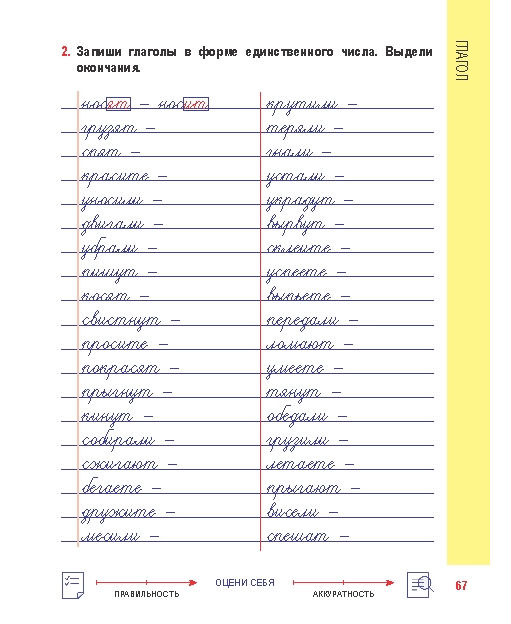 ГЛАГОЛ
2. Запиши глаголы в форме единственного числа. Выдели
окончания.
носят – носит
грузят –
спят –
красите –
уносили –
двигали –
убрали –
пишут –
косят –
свистнут –
просите –
покрасят –
прыгнут –
кинут –
собирали –
сжигают –
бегаете –
дружите –
месили –
крутили –
теряли –
гнали –
устали –
украдут –
вырвут –
склеите –
успеете –
выпьете –
передали –
ломают –
умеете –
тянут –
обедали –
грузили –
летаете –
прыгают –
висели –
спешат –
ОЦЕНИ СЕБЯ
ПРАВИЛЬНОСТЬ
АККУРАТНОСТЬ
67